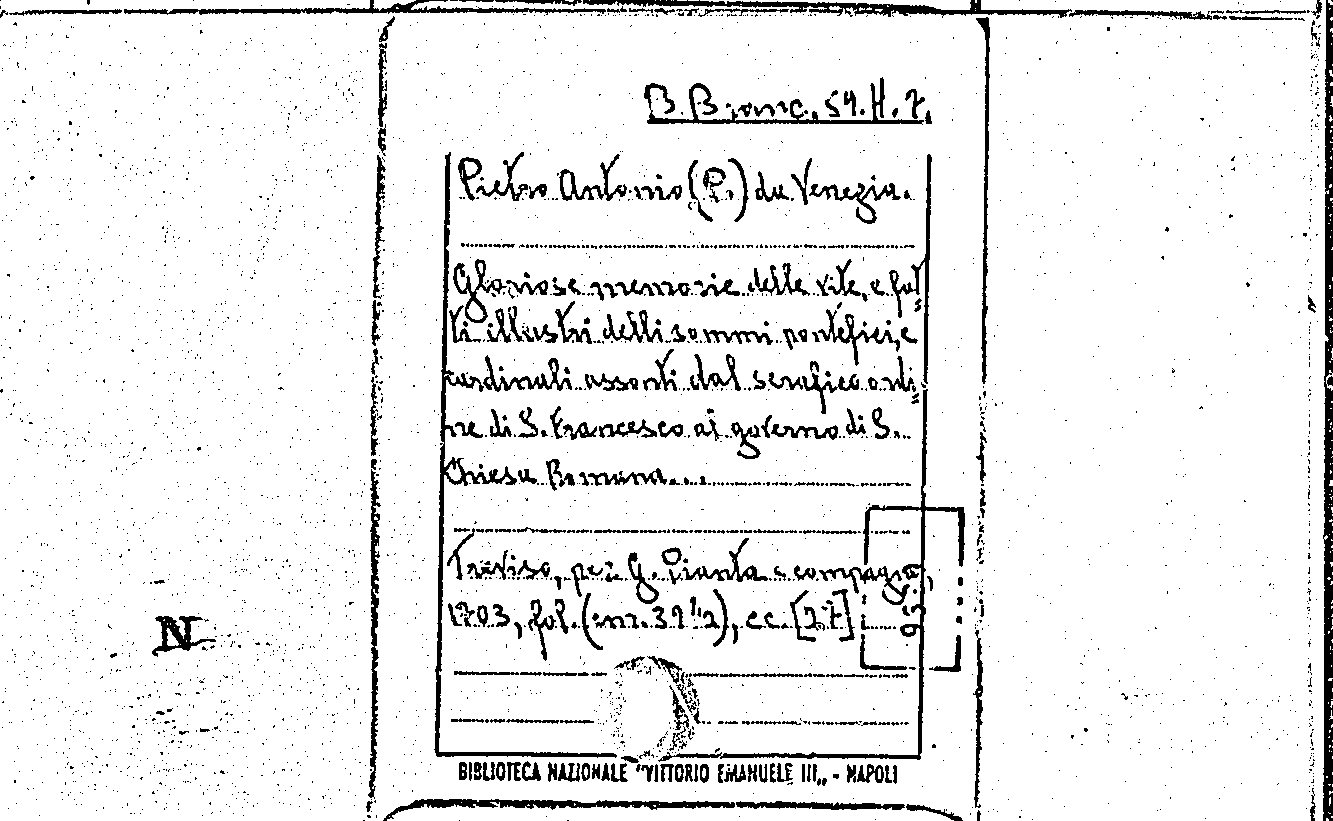 B. Branc. 54. H. 7.
Pietro Antonio (P.) da Venezia.
Gloriose memorie delle vite, e fat=
ti illustri delli sommi pontefici, e
cardinali assonti dal serafico ordi=
ne di S. Francesco al governo di S.
Chiesa Romana...
Treviso, per G. Pianta e compagni,
1703, fol. (cm. 39½), cc. [27]
N
BIBLIOTECA NAZIONALE "VITTORIO EMANUELE III„ - NAPOLI